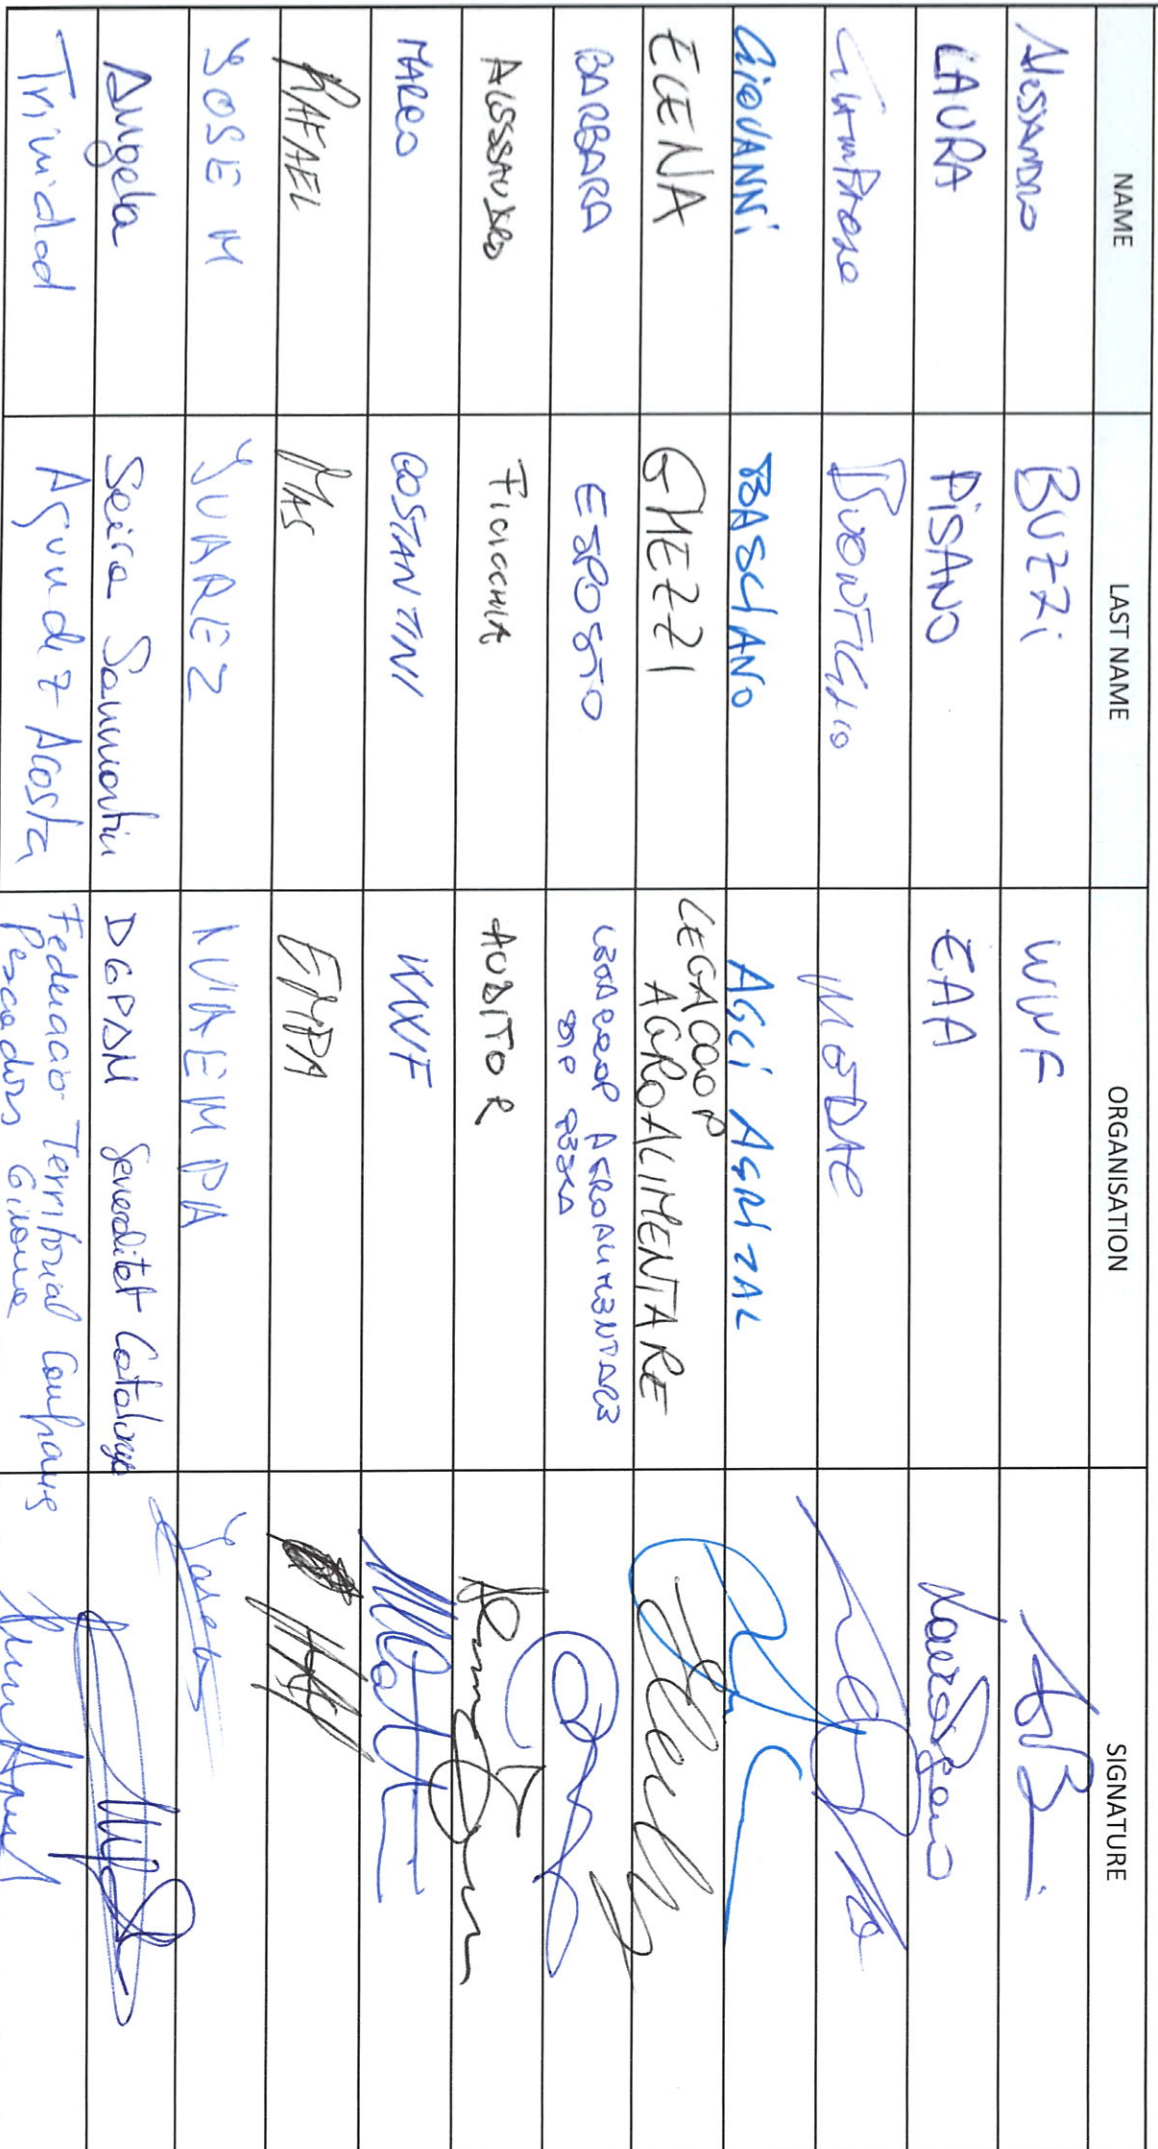 NAME LAST NAME ORGANISATION SIGNATURE
Alessandro BUZZi WWF
LAURA PISANO EAA
BUONFIGLIO MEDAC
GiOVANNi BASCIANO AGCI AGRITAL
ELENA GHEZZI LEGACOOP
AGROALIMENTARE
BARBARA ESPOSTO LEGACOOP AGROALIMENTARE
DIP PESCA
ALESSANDRO FICICCHIA AUDITOR
MARCO COSTANTINI WWF
RAFAEL MAS EMPA
JOSE M JUAREZ
Angela Seira Sanmartin DGPAM Generalitat Catalunya
Trinidad Agundez Acosta Federacio Territorial Confraries
Pescadors Girona